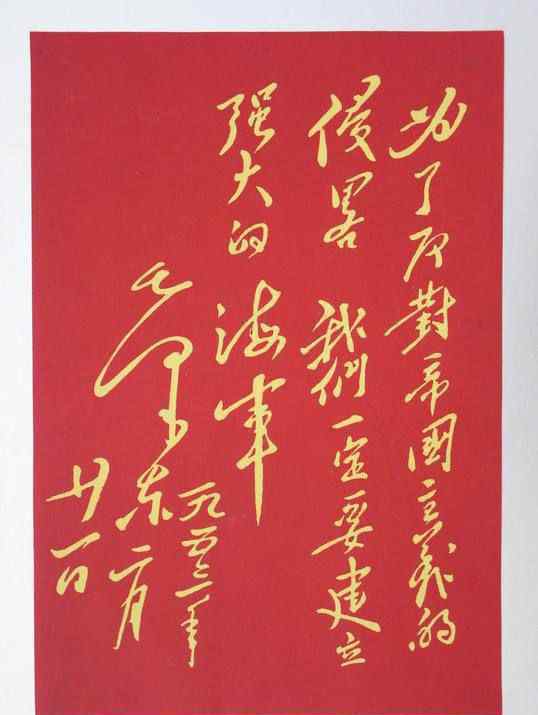 为了反對帝國主義的
侵畧我們一定要建立
强大的海軍
毛澤东
一九五三年
二月
廿一日